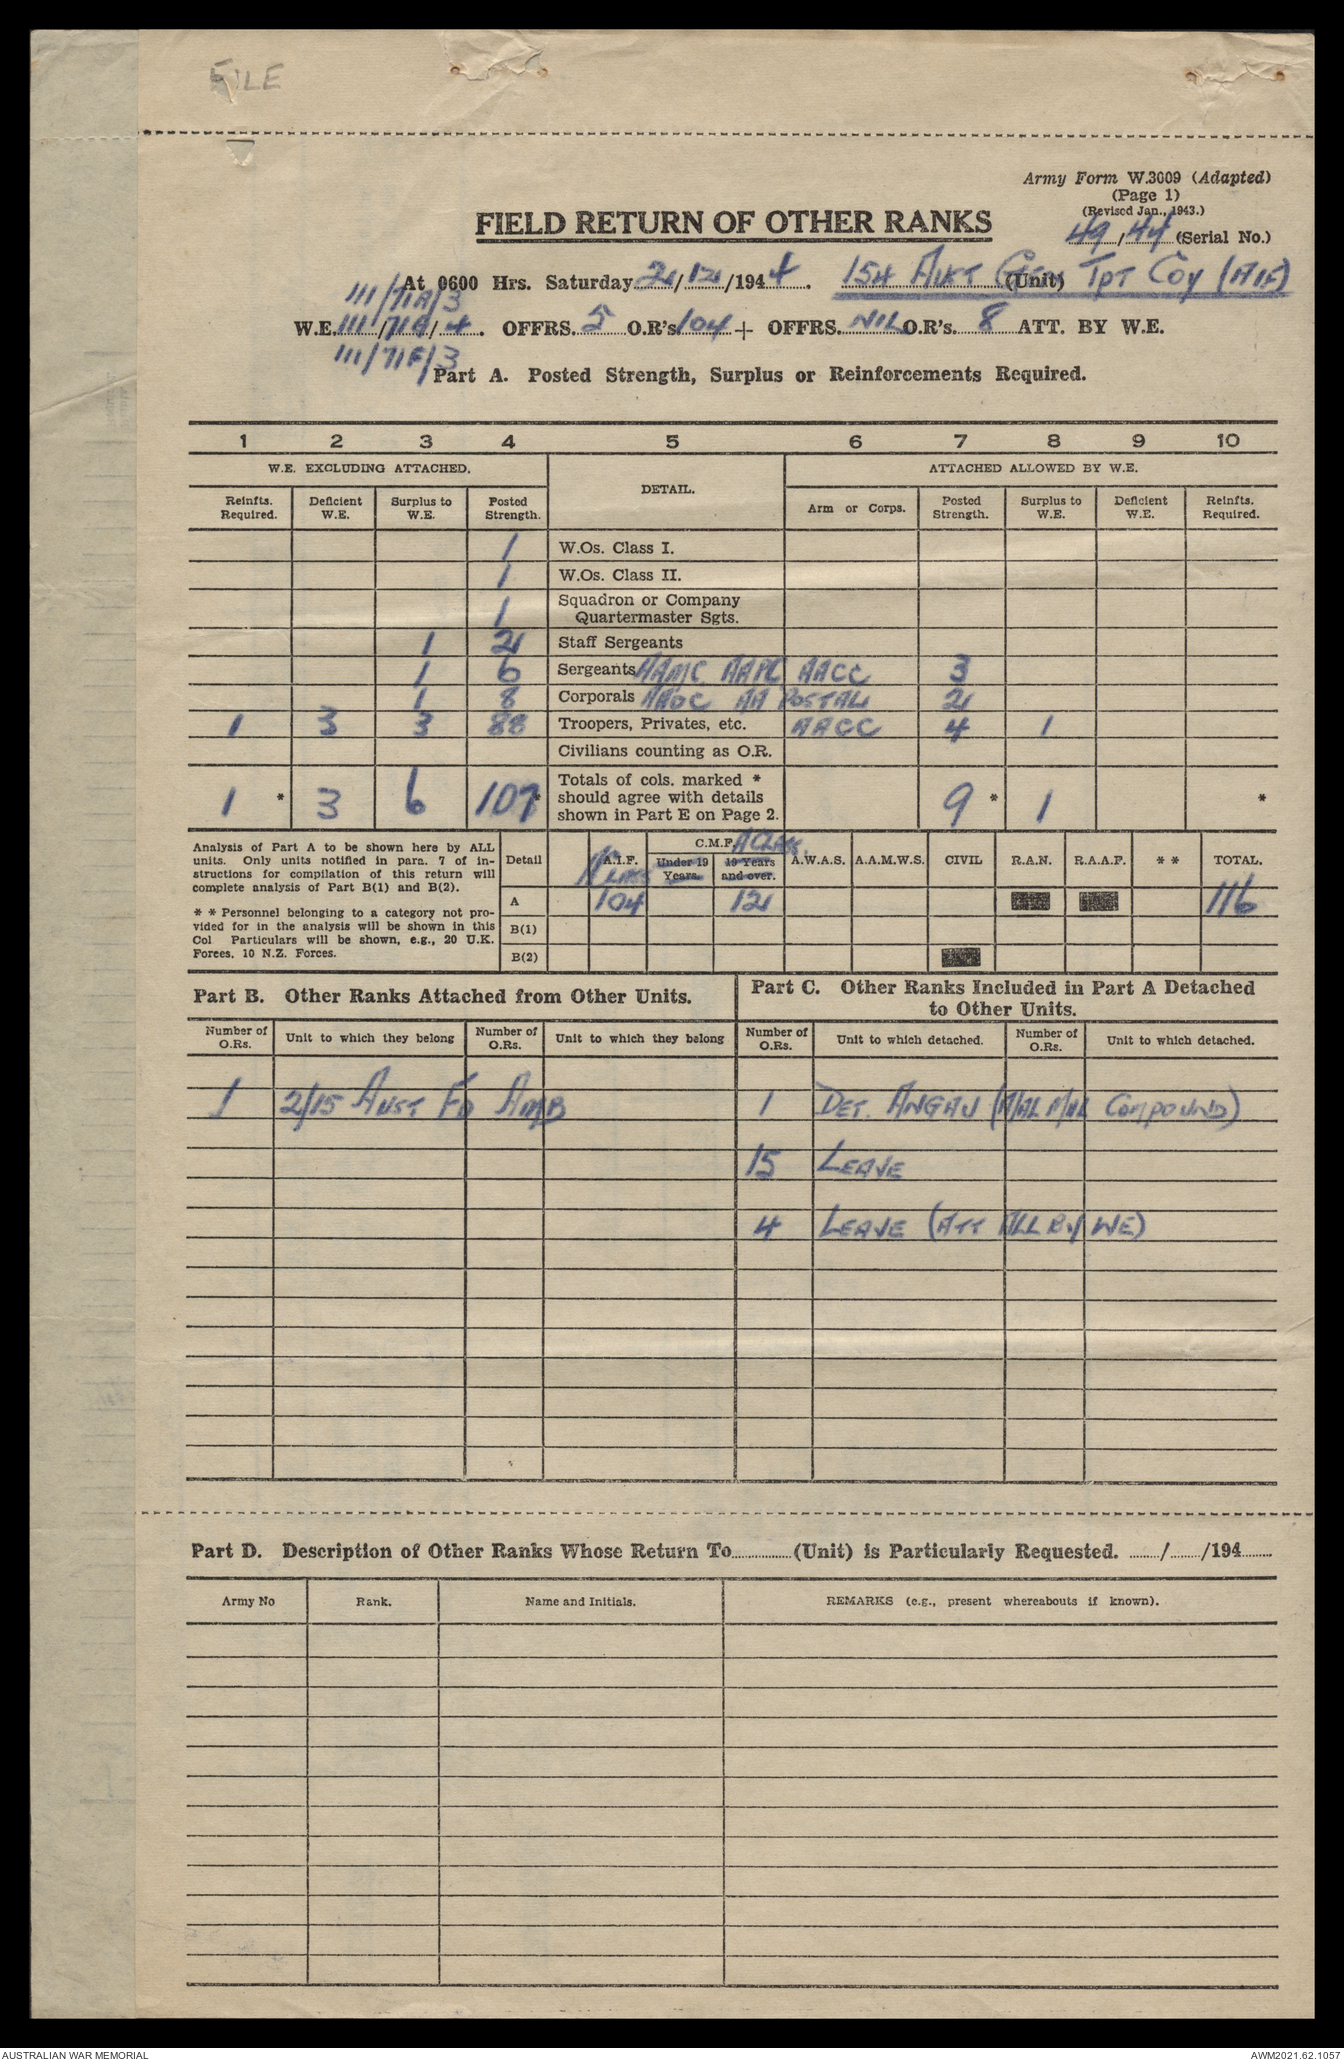 FILE
Army Form W.3009 (Adapted)
(Page 1)
(Revised Jan., 1943.)
FIELD RETURN OF OTHER RANKS
49/44 (Serial No.)
At 0600 Hrs. Saturday 2/12/1944. 154 Aust Gen Tpt Coy (AIF) (Unit)
111/71A/3
W.E. 111/71G/4. OFFRS. 5 O.R's 104 + OFFRS. NIL O.R's. 8 ATT. BY W.E.
111/71F/3
Part A. Posted Strength, Surplus or Reinforcements Required.
1 2 3 4 5 6 7 8 9 10
W.E. EXCLUDING ATTACHED. DETAIL. ATTACHED ALLOWED BY W.E.
Reinfts. Required. Deficient W.E. Surplus to W.E. Posted Strength. Arm or Corps. Posted Strength. Surplus to W.E. Deficient W.E. Reinfts. Required.
1 W.Os. Class I.
1 W.Os. Class II.
1 Squadron or Company Quartermaster Sgts.
1 2 Staff Sergeants
1 6 Sergeants AAMC AAPC AACC 3
1 8 Corporals AAOC AA POSTAL 2
1 3 3 88 Troopers, Privates, etc. AACC 4 1
Civilians counting as O.R.
1 * 3 6 107 * Totals of cols. marked * should agree with details shown in Part E on Page 2. 9 * 1 *
Analysis of Part A to be shown here by ALL
units. Only units notified in para. 7 of in-
structions for compilation of this return will
complete analysis of Part B(1) and B(2).
* * Personnel belonging to a category not pro-
vided for in the analysis will be shown in this
Col Particulars will be shown, e.g., 20 U.K.
Forces, 10 N.Z. Forces.
Detail A CLASS A.I.F. C.M.F. A CLASS. Under 19 Years. 19 Years and over. A.W.A.S. A.A.M.W.S. CIVIL R.A.N. R.A.A.F. * * TOTAL.
A 104 12 116
B(1)
B(2)
Part B. Other Ranks Attached from Other Units.
Part C. Other Ranks Included in Part A Detached
to Other Units.
Number of O.Rs. Unit to which they belong Number of O.Rs. Unit to which they belong Number of O.Rs. Unit to which detached. Number of O.Rs. Unit to which detached.
1 2/15 Aust Fd Amb 1 Det. ANGAU ( Compound)
15 Leave
4 Leave (Att All By WE)
Part D. Description of Other Ranks Whose Return To............(Unit) is Particularly Requested. ....../....../194......
Army No Rank. Name and Initials. REMARKS (e.g., present whereabouts if known).
AUSTRALIAN WAR MEMORIAL AWM2021.62.1057